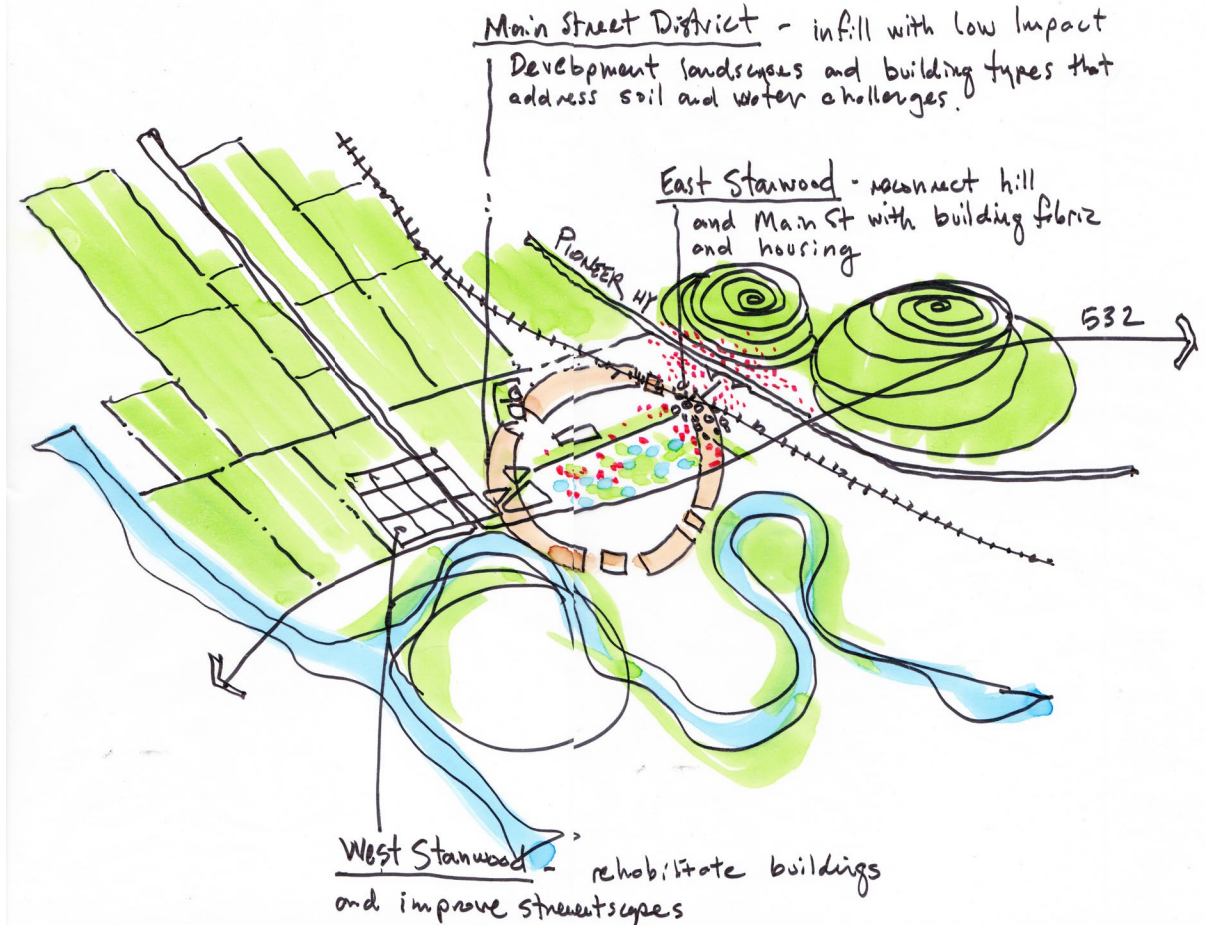 Main Street District - infill with low Impact
Development landscapes and building types that
address soil and water challenges.
East Stanwood - reconnect hill
and Main St with building fibric
and housing
PIONEER HY
532
West Stanwood - rehabilitate buildings
and improve streeetscapes